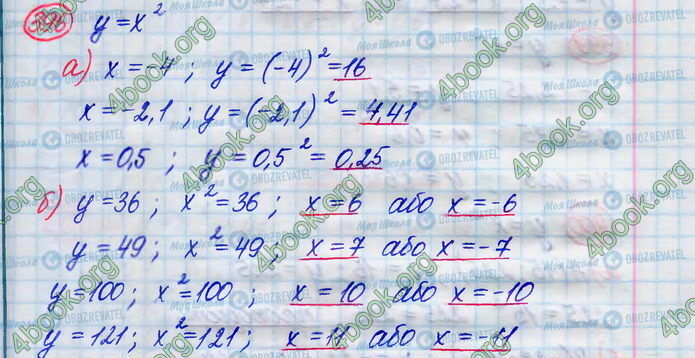 396 y = x²
а) x = -4 ; y = (-4)² = 16
x = -2,1 ; y = (-2,1)² = 4,41
x = 0,5 ; y = 0,5² = 0,25
б) y = 36 ; x² = 36 ; x = 6 або x = -6
y = 49 ; x² = 49 ; x = 7 або x = -7
y = 100 ; x² = 100 ; x = 10 або x = -10
y = 121 ; x² = 121 ; x = 11 або x = -11
4book.org
Моя Школа
OBOZREVATEL